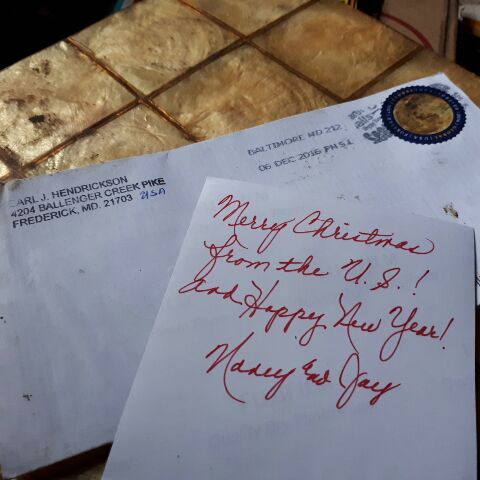 BALTIMORE MD 212
06 DEC 2016 PM 5 L
CARL J. HENDRICKSON
4204 BALLENGER CREEK PIKE
FREDERICK, MD. 21703 USA
Merry Christmas
from the U.S.!
and Happy New Year!
Nancy and Jay